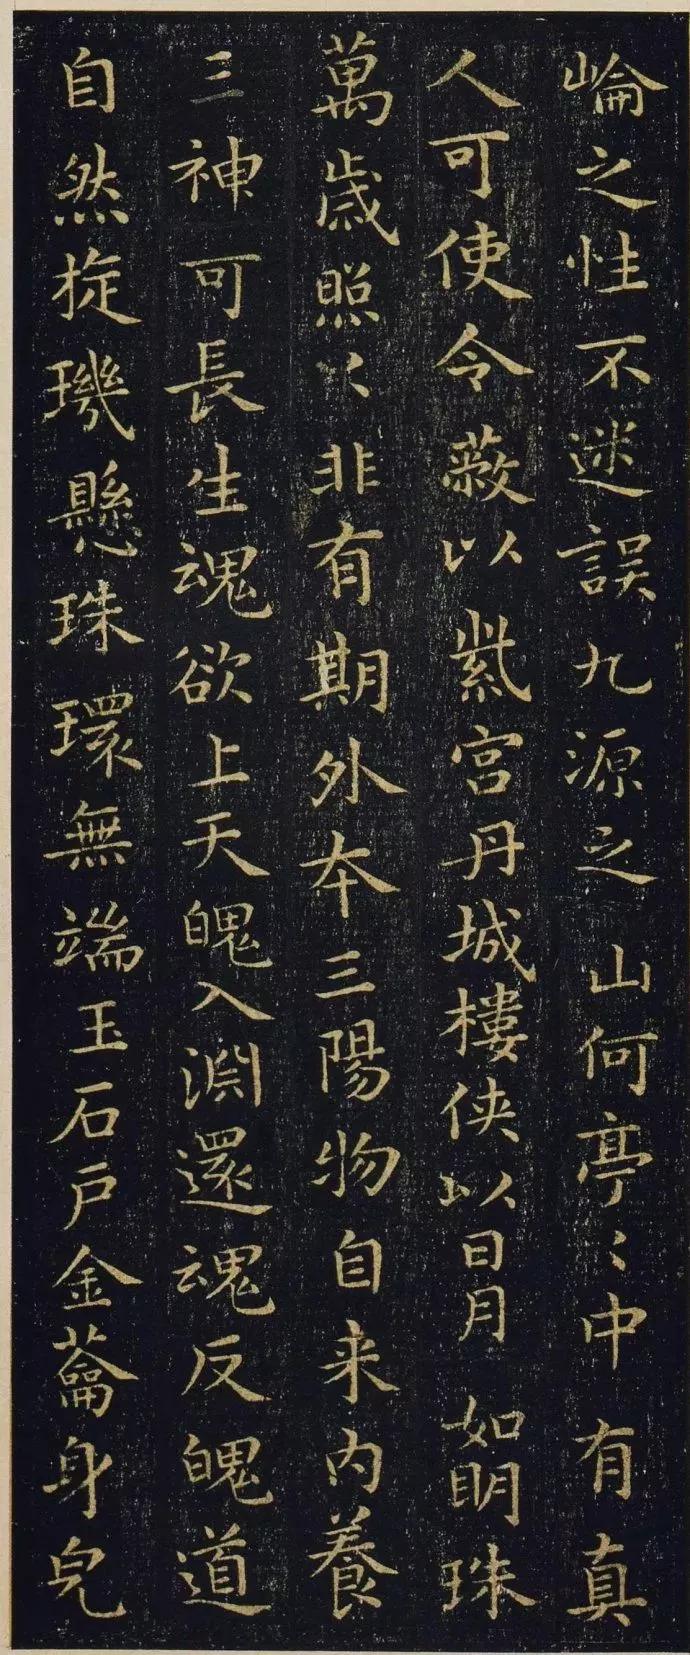 崘之性不迷誤九源之山何亭〻中有真
人可使令蔽以紫宮丹城樓侠以日月如明珠
萬歲照〻非有期外夲三陽物自来内養
三神可長生魂欲上天魄入淵還魂反魄道
自然旋璣懸珠環無端玉石戶金蘥身皃